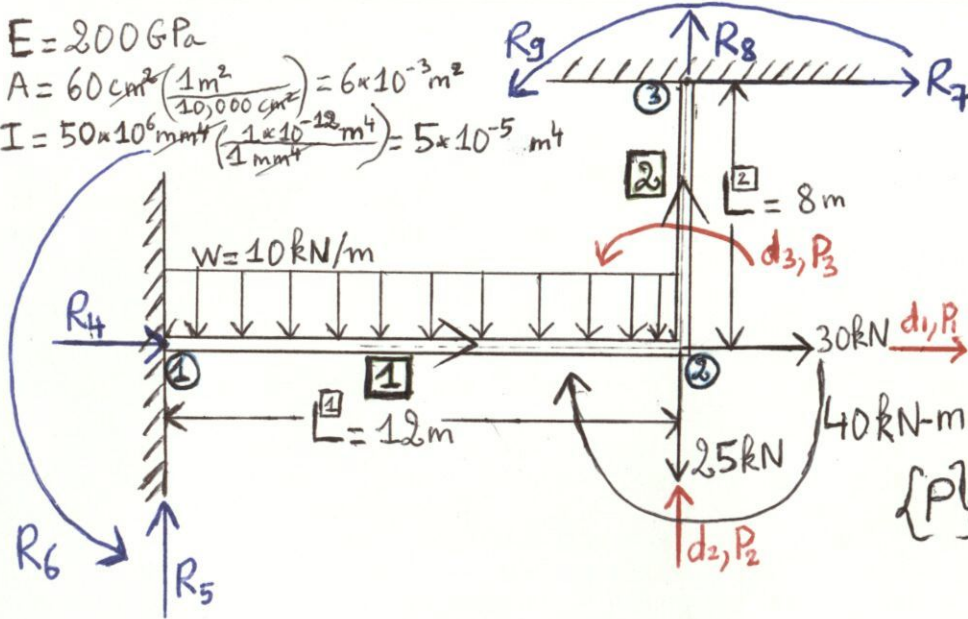 E = 200 GPa
A = 60 cm² (1m²/10,000 cm²) = 6*10⁻³ m²
I = 50*10⁶ mm⁴ (1*10⁻¹² m⁴/1 mm⁴) = 5*10⁻⁵ m⁴
R9
R8
R7
3
2
L[2] = 8m
d3, P3
w = 10 kN/m
R4
1
1
2
30kN
d1, P1
L[1] = 12m
40 kN-m
25kN
{P}
d2, P2
R6
R5